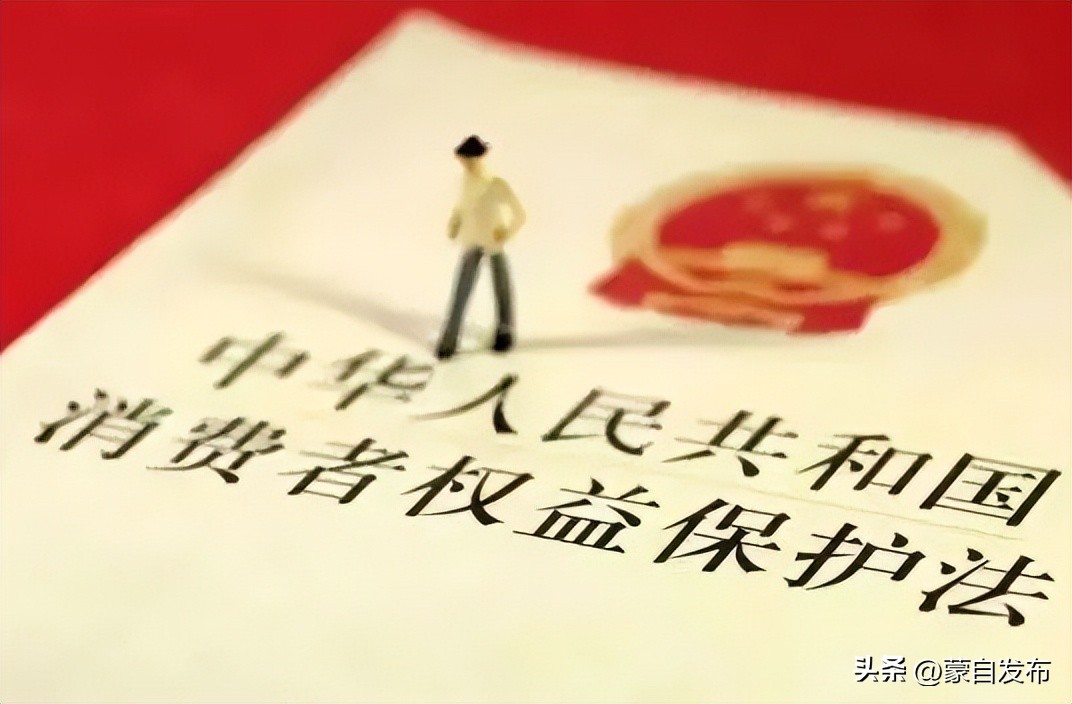 中华人民共和国
消费者权益保护法
头条 @蒙自发布